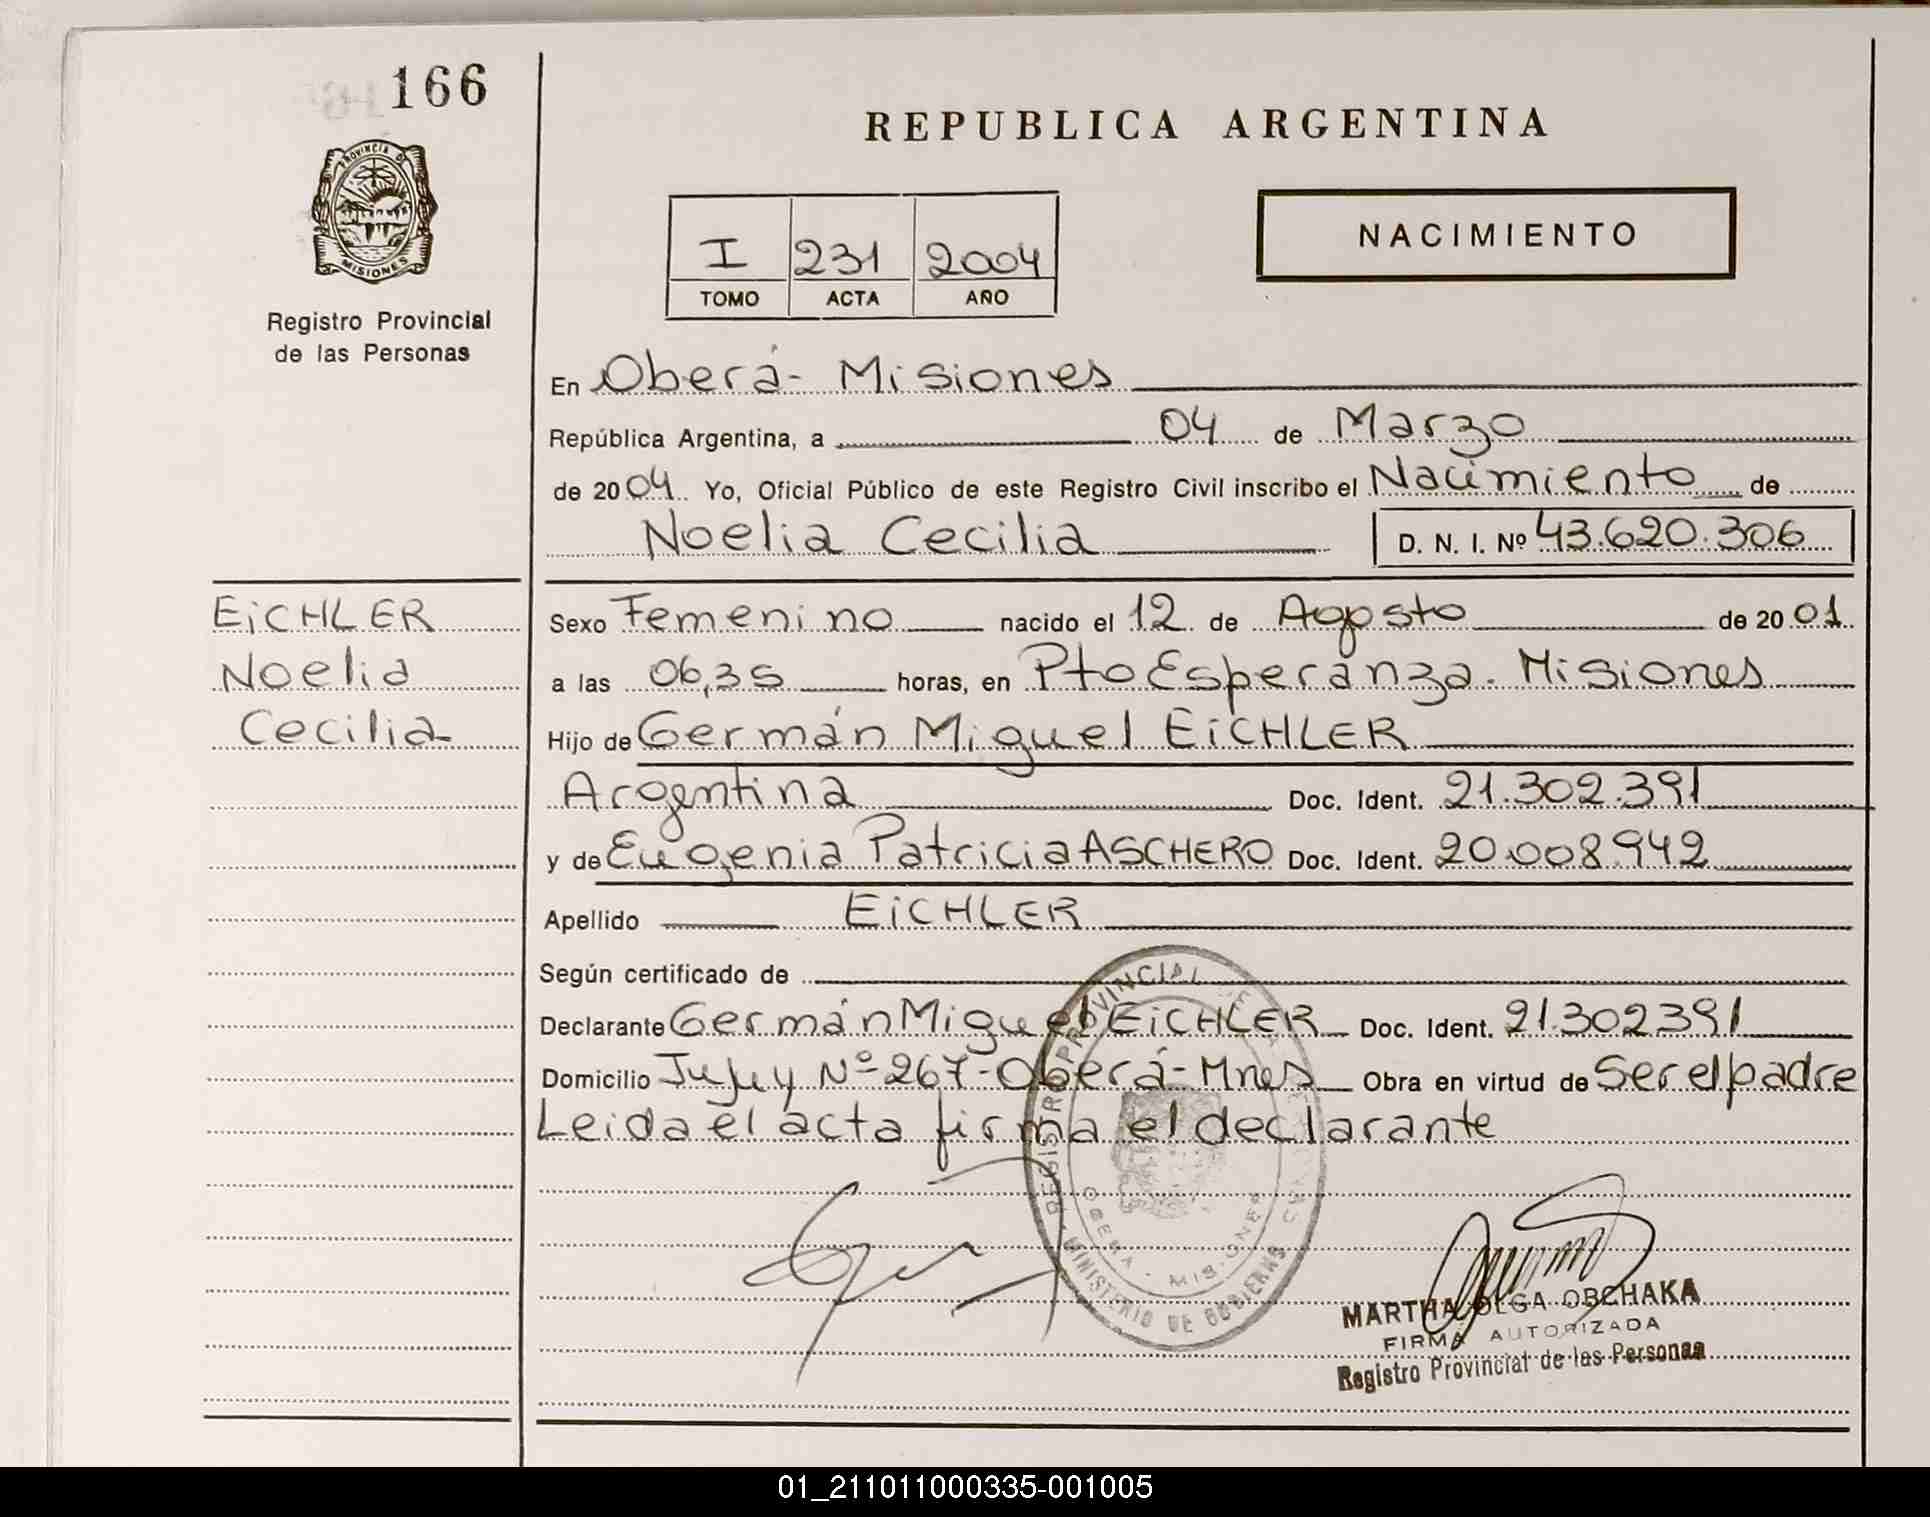 166
PROVINCIA DE
MISIONES
Registro Provincial
de las Personas
REPUBLICA ARGENTINA
I 231 2004
TOMO ACTA AÑO
NACIMIENTO
En Oberá - Misiones
República Argentina, a 04 de Marzo
de 2004 Yo, Oficial Público de este Registro Civil inscribo el Nacimiento de
Noelia Cecilia D. N. I. Nº 43.620.306
EiCHLER
Noelia
Cecilia
Sexo Femenino nacido el 12 de Agosto de 2001
a las 06,35 horas, en Pto Esperanza - Misiones
Hijo de Germán Miguel EiCHLER
Argentina Doc. Ident. 21.302.391
y de Eugenia Patricia ASCHERO Doc. Ident. 20.008.942
Apellido EiCHLER
Según certificado de
Declarante Germán Miguel EiCHLER Doc. Ident. 21.302391
Domicilio Jujuy Nº 267 - Oberá - Mnes Obra en virtud de Ser el padre
Leida el acta firma el declarante
REGISTRO PROVINCIAL DE LAS PERSONAS
OBERA - MISIONES
MINISTERIO DE GOBIERNO
MARTHA OLGA OBCHAKA
FIRMA AUTORIZADA
Registro Provincial de las Personas
01_211011000335-001005